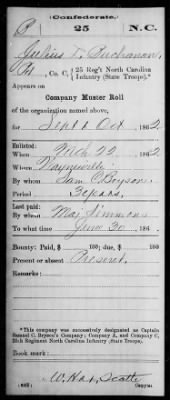 (Confederate.)
B 25 N.C.
Julius T. Buchanan
Pvt, Co. C, 25 Reg't North Carolina
Infantry (State Troops).*
Appears on
Company Muster Roll
of the organization named above,
for Sept & Oct, 1862.
Enlisted:
When Mch 22, 1862.
Where Waynesville
By whom Sam C. Bryson
Period 3 years
Last paid:
By whom Maj. Simmons
To what time June 30, 186
Bounty: Paid, $ 100; due $ 100
Present or absent Present
Remarks:
*This company was successively designated as Captain
Samuel C. Bryson's Company; Company A, and Company C,
25th Regiment North Carolina Infantry (State Troops).
Book mark:
(642)
Copyist.